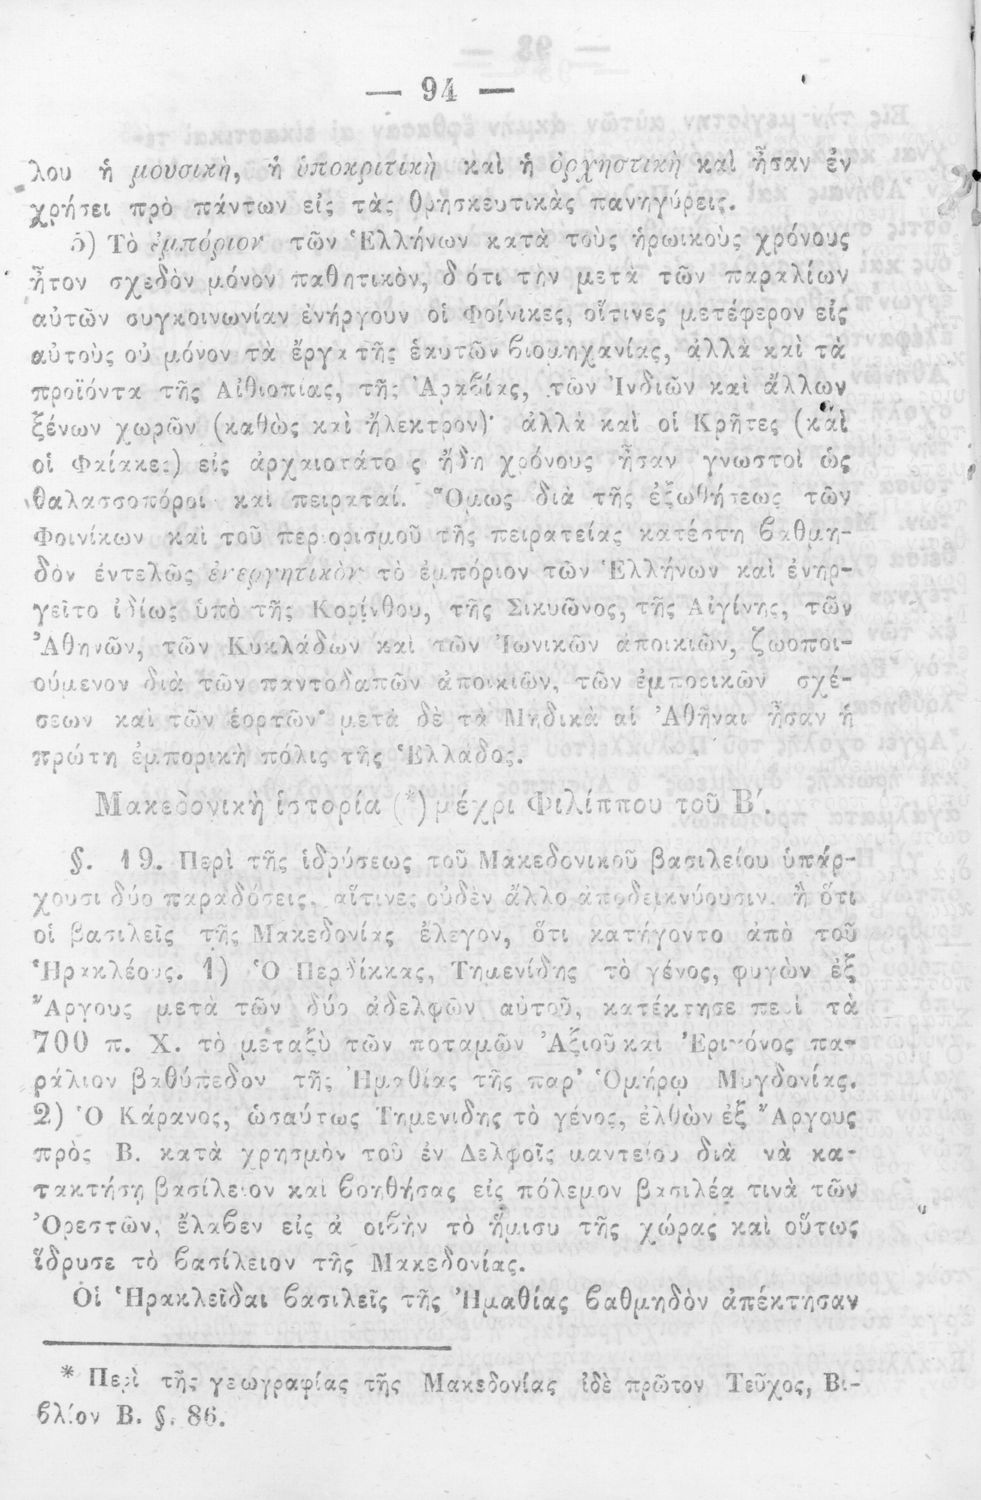 — 94 —
λου ἡ μουσικὴ, ἡ ὑποκριτικὴ καὶ ἡ ὀρχηστικὴ καὶ ἦσαν ἐν
χρήσει πρὸ πάντων εἰς τὰς θρησκευτικὰς πανηγύρεις.
5) Τὸ ἐμπόριον τῶν Ἑλλήνων κατὰ τοὺς ἡρωικοὺς χρόνους
ἦτον σχεδὸν μόνον παθητικὸν, διότι τὴν μετὰ τῶν παραλίων
αὐτῶν συγκοινωνίαν ἐνήργουν οἱ Φοίνικες, οἵτινες μετέφερον εἰς
αὐτοὺς οὐ μόνον τὰ ἔργα τῆς ἑαυτῶν βιομηχανίας, ἀλλὰ καὶ τὰ
προϊόντα τῆς Αἰθιοπίας, τῆς Ἀραβίας, τῶν Ἰνδιῶν καὶ ἄλλων
ξένων χωρῶν (καθὼς καὶ ἤλεκτρον)· ἀλλὰ καὶ οἱ Κρῆτες (καὶ
οἱ Φαίακες) εἰς ἀρχαιοτάτους ἤδη χρόνους ἦσαν γνωστοὶ ὡς
θαλασσοπόροι καὶ πειραταί. Ὅμως διὰ τῆς ἐξωθήσεως τῶν
Φοινίκων καὶ τοῦ περιορισμοῦ τῆς πειρατείας κατέστη βαθμη-
δὸν ἐντελῶς ἐνεργητικὸν τὸ ἐμπόριον τῶν Ἑλλήνων καὶ ἐνηρ-
γεῖτο ἰδίως ὑπὸ τῆς Κορίνθου, τῆς Σικυῶνος, τῆς Αἰγίνης, τῶν
Ἀθηνῶν, τῶν Κυκλάδων καὶ τῶν Ἰωνικῶν ἀποικιῶν, ζωοποι-
ούμενον διὰ τῶν παντοδαπῶν ἀποικιῶν, τῶν ἐμπορικῶν σχέ-
σεων καὶ τῶν ἑορτῶν· μετὰ δὲ τὰ Μηδικὰ αἱ Ἀθῆναι ἦσαν ἡ
πρώτη ἐμπορικὴ πόλις τῆς Ἑλλάδος.
Μακεδονικὴ ἱστορία (*) μέχρι Φιλίππου τοῦ Β′.
§. 19. Περὶ τῆς ἱδρύσεως τοῦ Μακεδονικοῦ βασιλείου ὑπάρ-
χουσι δύο παραδόσεις, αἵτινες οὐδὲν ἄλλο ἀποδεικνύουσιν, ἢ ὅτι
οἱ βασιλεῖς τῆς Μακεδονίας ἔλεγον, ὅτι κατήγοντο ἀπὸ τοῦ
Ἡρακλέους. 1) Ὁ Περδίκκας, Τημενίδης τὸ γένος, φυγὼν ἐξ
Ἄργους μετὰ τῶν δύο ἀδελφῶν αὐτοῦ, κατέκτησε περὶ τὰ
700 π. Χ. τὸ μεταξὺ τῶν ποταμῶν Ἀξιοῦ καὶ Ἐριγόνος πα-
ράλιον βαθύπεδον τῆς Ἠμαθίας τῆς παρ' Ὁμήρῳ Μυγδονίας.
2) Ὁ Κάρανος, ὡσαύτως Τημενίδης τὸ γένος, ἐλθὼν ἐξ Ἄργους
πρὸς Β. κατὰ χρησμὸν τοῦ ἐν Δελφοῖς μαντείου διὰ νὰ κα-
τακτήσῃ βασίλειον καὶ βοηθήσας εἰς πόλεμον βασιλέα τινὰ τῶν
Ὀρεστῶν, ἔλαβεν εἰς ἀμοιβὴν τὸ ἥμισυ τῆς χώρας καὶ οὕτως
ἵδρυσε τὸ βασίλειον τῆς Μακεδονίας.
Οἱ Ἡρακλεῖδαι βασιλεῖς τῆς Ἠμαθίας βαθμηδὸν ἀπέκτησαν
* Περὶ τῆς γεωγραφίας τῆς Μακεδονίας ἰδὲ πρῶτον Τεῦχος, Βι-
βλίον Β. §. 86.